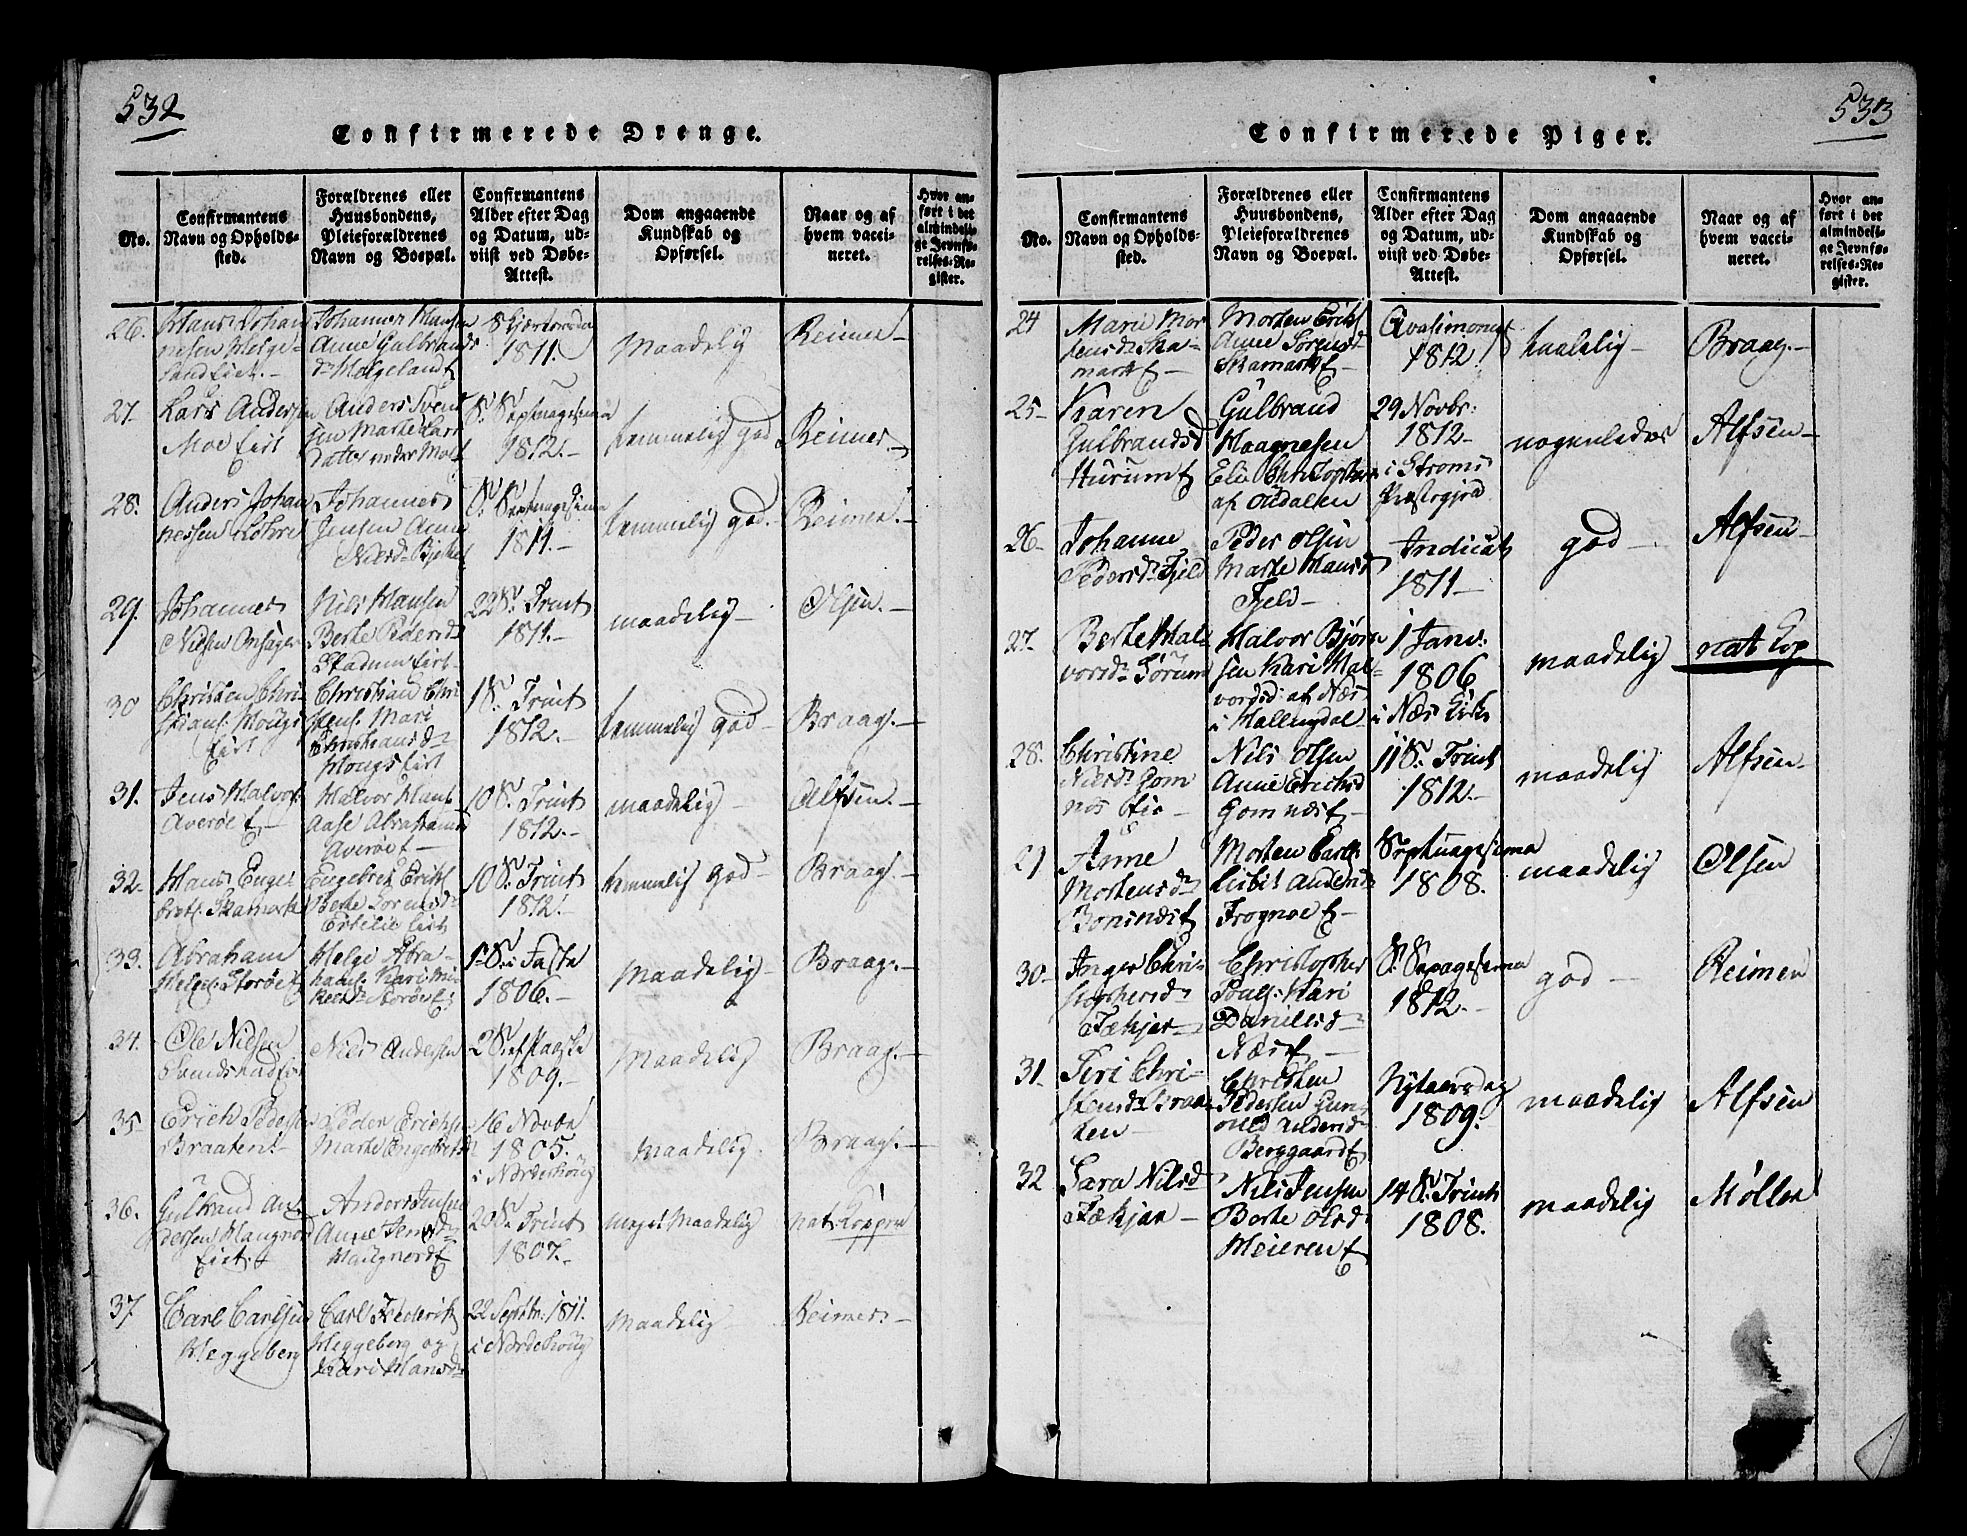 532
Confirmerede Drenge.
No.
Confirmantens
Navn og Opholds-
sted.
Forældrenes eller
Huusbondens,
Pleieforældrenes
Navn og Boepæl.
Confirmantens
Alder efter Dag
og Datum, ud-
viist ved Døbe-
Attest.
Dom angaaende
Kundskab og
Opførsel.
Naar og af
hvem vacci-
neret.
Hvor an-
ført i det
almindeli-
ge Jevnfø-
relses-Re-
gister.
26.
Hans Johan
nesen Helge-
land Eiet.-
Johannes Hansen
Anne Gulbrands
dr Helgeland
1811.
Maadelig
Reimer-
27.
Lars Andersen
Moe Eiet
Anders Svend
sen Marte Lars
datter under Moe
S. Septuagesima
1812.-
temmelig god
Reimer-
28.
Anders Johan
nessen
Johannes
Jensen Anne
Nilsdr
S. Septuagesima
1811.-
temmelig god.-
Reimer.-
29.
Johannes
Nielsen Onsager
Nils Hansen
Berte Pedersd
Stadum Eiet-
22 S. Trinit
1811.-
maadelig-
Olsen.-
30
Christen Chri
stians. Houg
Eiet
Christian Chri
stens. Mari
Christiansdr
Hougs Eiet
1 S. Trinit
1812.-
temmelig god-
Braag.-
31.
Jens Halvors.
Averøe E-
Halvor Hans.
Aase Abrahams
Averøe E-
10 S. Trinit
1812.-
maadelig-
Alfsen.-
32.
Hans Enge
brets. Skamark
Engebret Ericks
Berte Sorensdr
Eiet
10 S. Trinit
1812.-
temmelig god-
Braag.-
33.
Abraham
Helges. Storøe E
Helge Abra-
hams. Kari
Storøe E.
1 S. i Faste
1806.-
Maadelig-
Braag.-
34.
Ole Nielsen
Nils Andersen
2 S. ef Paaske
1809.-
Maadelig
Braag.-
35.
Erich Peders.
Braaten.-
Peder Ericksen
Marte Engebretsd
16 Novbr
1805.
i Nordrehoug
Maadelig.
Braag.-
36.
Gulbrand An
dersen Haugnor
Eiet.
Anders Jensen
Anne Jensdr
Haugnor E
20 S. Trinit
1807.-
meget Maadelig
nat. Kopper
37
Carl Carlsen
Heggeberg
Carl Frederik
Heggeberg og
Kari Hansdr
22 Septbr. 1811.
i Nordrehoug
Maadelig-
Reimer.-
533
Confirmerede Piger.
No.
Confirmantens
Navn og Opholds-
sted.
Forældrenes eller
Huusbondens,
Pleieforældrenes
Navn og Boepæl.
Confirmantens
Alder efter Dag
og Datum, ud-
viist ved Døbe-
Attest.
Dom angaaende
Kundskab og
Opførsel.
Naar og af
hvem vacci-
neret.
Hvor an-
ført i det
almindeli-
ge Jevnfø-
relses-Re-
gister.
24
Mari Mor
tensdr Ska-
mark E-
Morten Ericks
Anne Sørensd
Skamark E-
Qvasimong
1812
Braag.-
25-
Karen
Gulbrandsd
Hurum E
Gulbrand
Haagnesen
Eli Christophers
af Oudalen
29 Novbr:
1812-
i Stroms
Præstegjeld
nogenledes
Alfsen-
26-
Johanne
Pedersdr Fjeld
Peder Olsen
Marte Hansd
Fjeld-
1811-
god-
Alfsen-
27.
Berte Hal
vorsdr Sørum
Halvor Bjørn
sen Kari Hal-
vorsd: af Næs
i Hallingdal
1 Janv.
1806
i Næs Kirke
maadelig
nat Kop
28.
Christine
Nilsdr Gom
næs Eie
Nils Olsen
Anne Ericksd
Gomnæs E-
11 S. Trinit
1812.-
maadelig
Alfsen-
29
Anne
Mortensdr
Bonsnæs E
Morten Carls.
Lisbet Andersd
Frognøe E-
Septuagesima
1808.
maadelig
Olsen
30-
Inger Chri-
stophersdr
Fækjær-
Christopher
Pouls. Kari
Danielsdr
Næs E-
S. Sepagesima
1812.-
god-
Reimer
31-
Siri Chri-
stensdr Braa
ten-
Christen
Pedersen Gun
ild Andersdr
Berggaard E
Nytaarsdag
1809.
maadelig
Alfsen
32
Sara Nilsdr
Fækjær-
Nils Jensen
Berte Olsdr
Meieren E
14 S. Trinit
1808.
maadelig
Møller